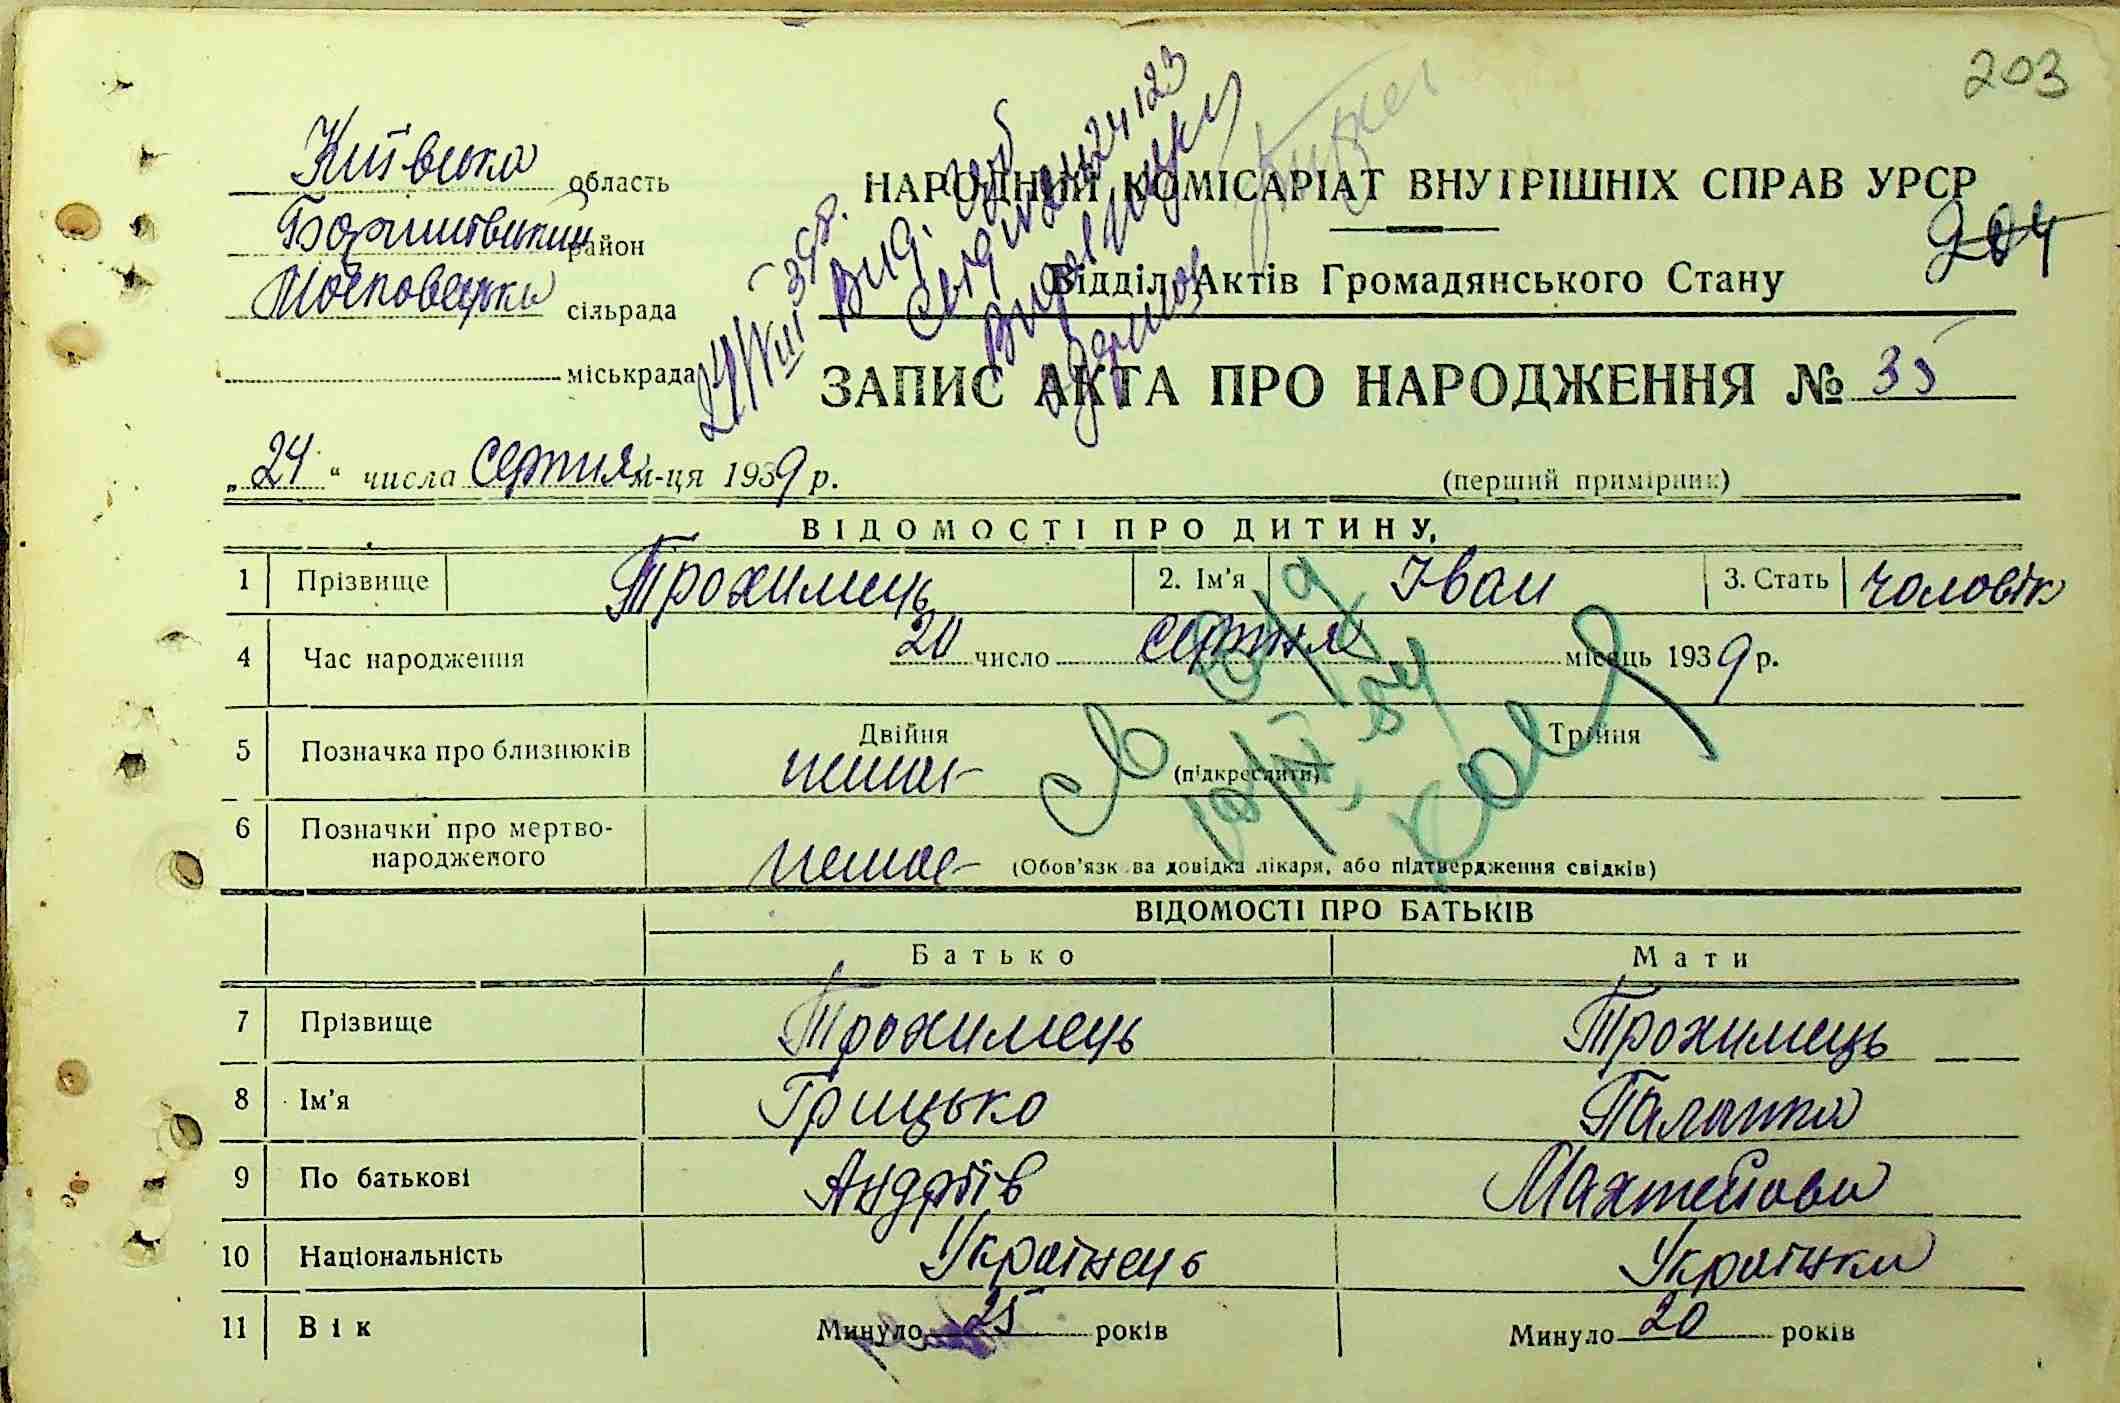 203
Київська область
Бориспівський район
сільрада
міськрада
НАРОДНИЙ КОМІСАРІАТ ВНУТРІШНІХ СПРАВ УРСР
204
Відділ Актів Громадянського Стану
ЗАПИС АКТА ПРО НАРОДЖЕННЯ № 35
„24“ числа серпня м-ця 1939 р.
(перший примірник)
ВІДОМОСТІ ПРО ДИТИНУ.
1 Прізвище Трохимець 2. Ім'я Іван 3. Стать чоловік
4 Час народження 20 число серпня місяць 1939 р.
5 Позначка про близнюків Двійня немає (підкреслити) Трійня
6 Позначки про мертво-
народженого немає (Обов'язкова довідка лікаря, або підтвердження свідків)
ВІДОМОСТІ ПРО БАТЬКІВ
Батько Мати
7 Прізвище Трохимець Трохимець
8 Ім'я Грицько Палажка
9 По батькові Андріїв Махтейова
10 Національність Українець Українка
11 Вік Минуло 25 років Минуло 20 років